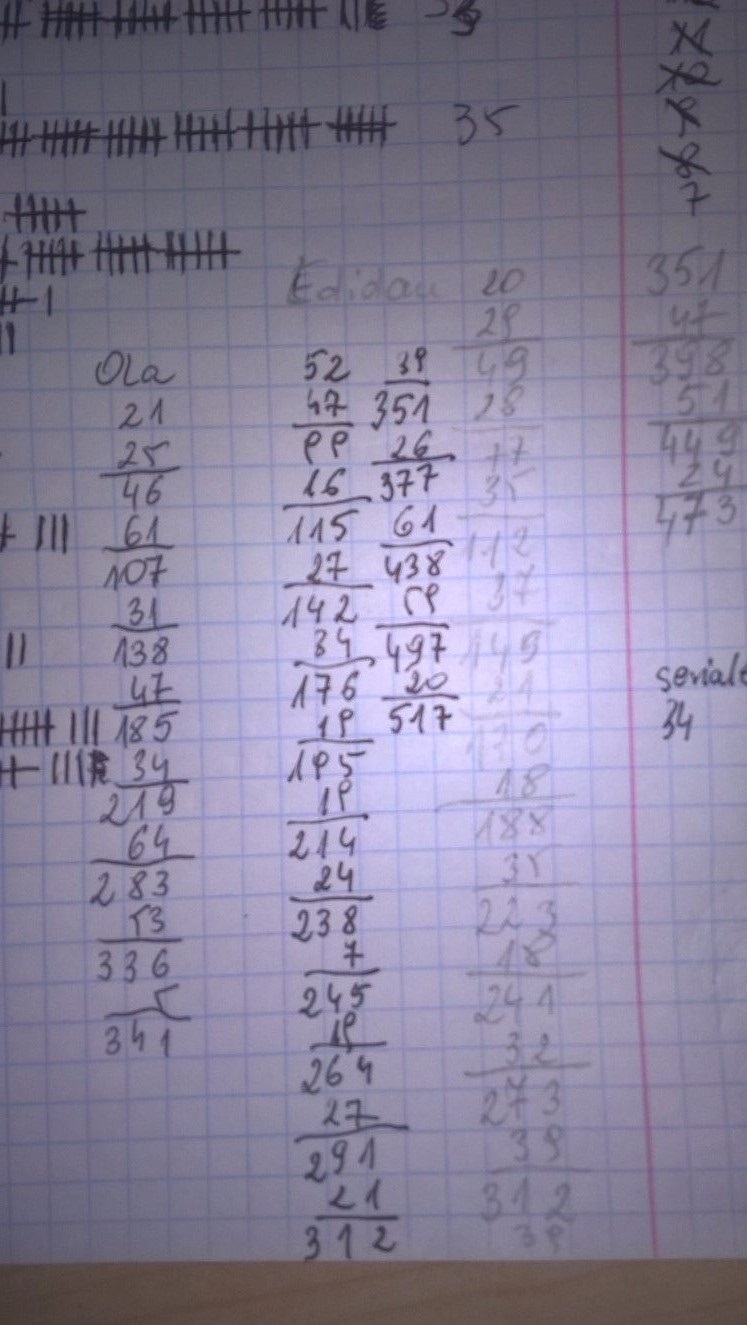 35
7
Ola
21
25
46
61
107
31
138
47
185
34
219
64
283
53
336
5
341
Edidau
52
47
99
16
115
27
142
34
176
19
195
19
214
24
238
7
245
19
264
27
291
21
312
39
351
26
377
61
438
59
497
20
517
20
29
49
28
77
35
112
37
149
21
170
18
188
35
223
18
241
32
273
39
312
39
351
47
398
51
449
24
473
34